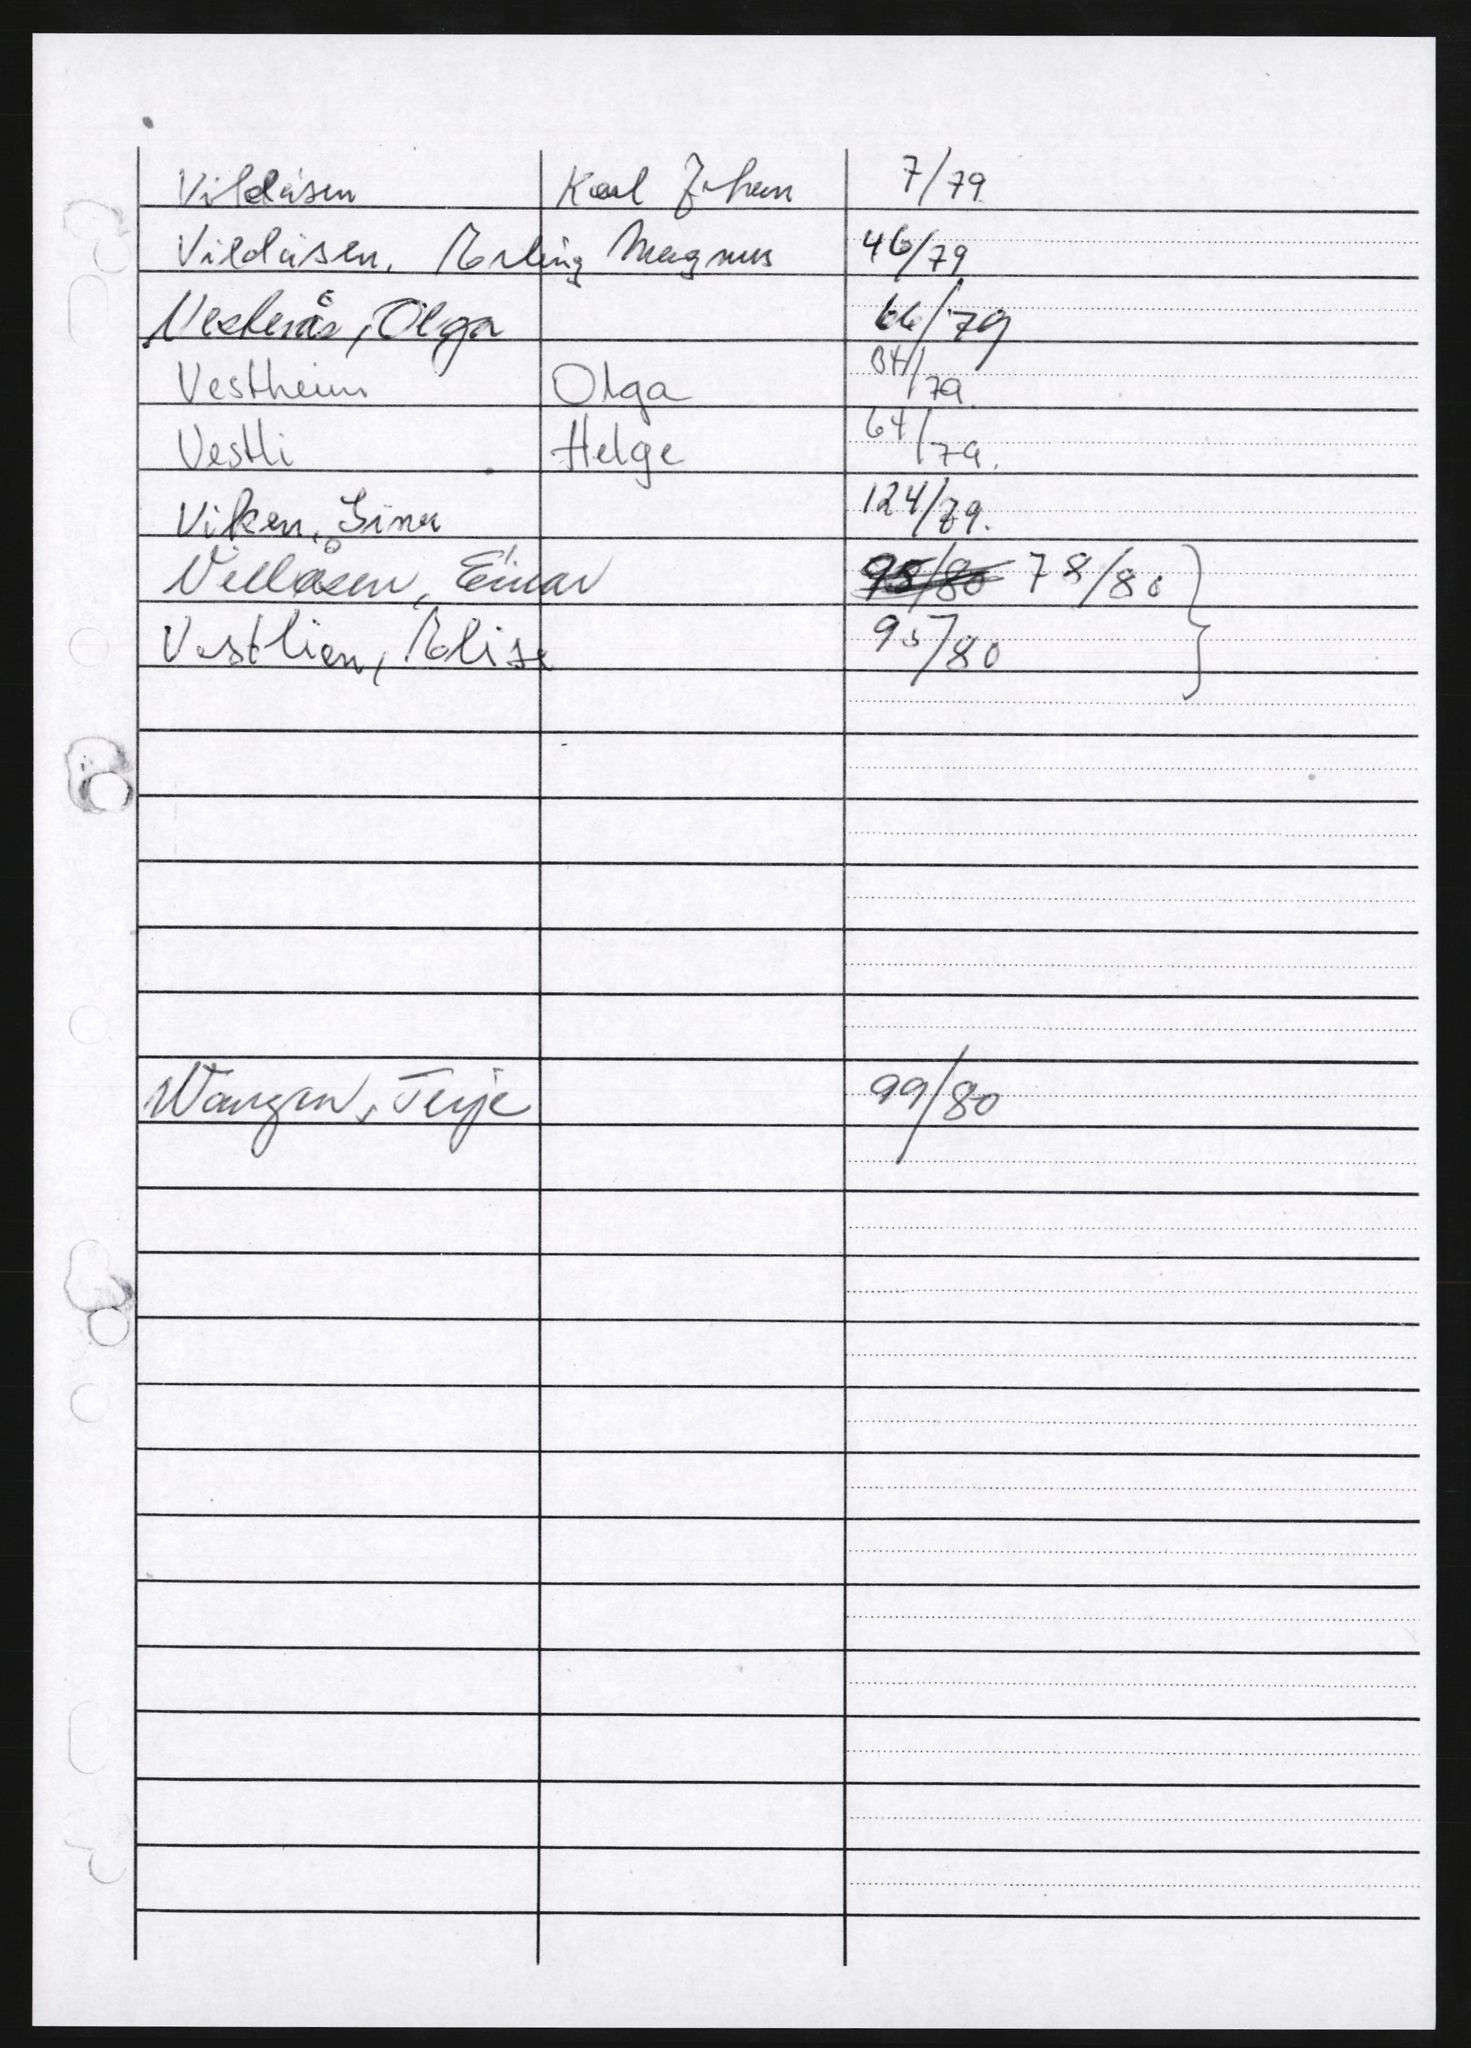 Vildåsen Karl Johan 7/79
Vildåsen, Erling Magnus 46/79
Vesterås, Olga 66/79
Vestheim Olga 84/79
Vestli Helge 64/79.
Viken, 124/79.
Villåsen, Einar 95/80 78/80
Vestlien, Elise 95/80
Wangen, Terje 99/80